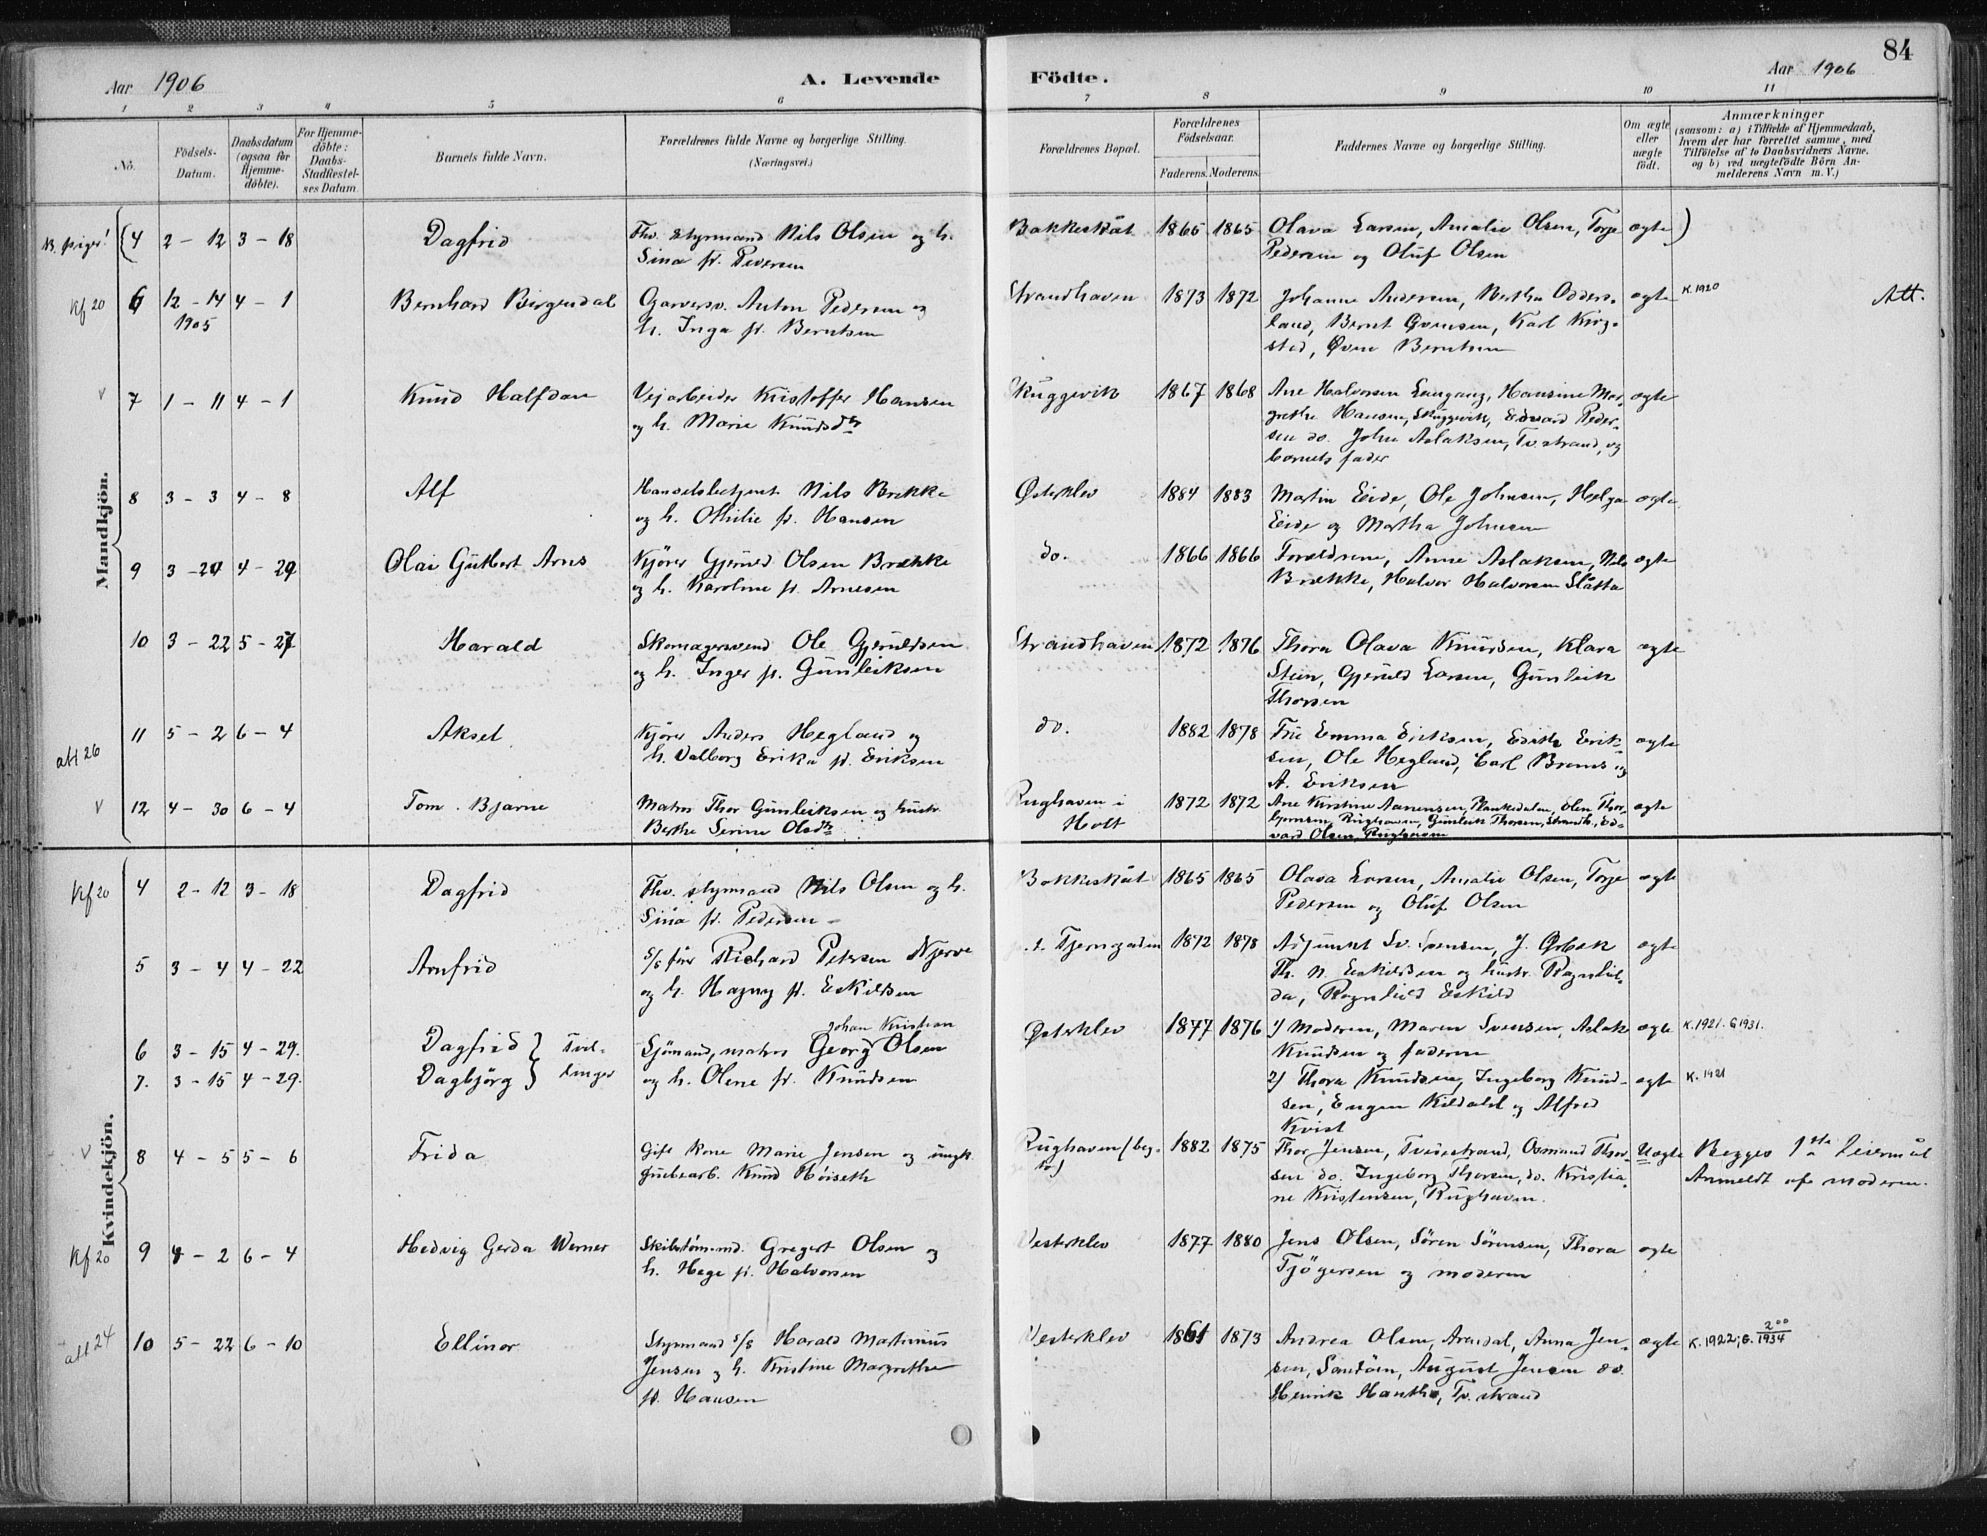 84
Aar 1906 A. Levende Födte. Aar 1906
1 2 3 4 5 6 7 8 9 10 11
No.
Födsels-Datum.
Daabsdatum (ogsaa for Hjemme-döbte).
For Hjemme-döbte: Daabs-Stadfæstel-ses Datum
Barnets fulde Navn.
Forældrenes fulde Navne og borgerlige Stilling. (Næringsvei.)
Forældrenes Bopæl.
Forældrenes Födselsaar.
Faderens. Moderens.
Faddernes Navne og borgerlige Stilling.
Om ægte eller uægte födt.
Anmærkninger
(saasom: a) i Tilfælde af Hjemmedaab, hvem der har forrettet samme, med Tilföielse af to Daabsvidners Navne. og b) ved uægtefödte Börn An-melderens Navn m. V.)
Mandkjön.
NB. piger! (4 2 – 12 3 – 18 Dagfrid Fhv. styrmand Nils Olsen og h. Bakkeskåt 1865 1865 Olava Larsen, Amalie Olsen, Torje ægte )
Sina f. Pedersen Pedersen og Oluf Olsen
Kf 20 6 12 – 14 4 – 1 Bernhard Birgendal Garversv. Anton Pedersen og Strandhaven 1873 1872 Johanne Andersen, Bertha Odders- ægte K. 1920 Att.
1905 h. Inga f. Berntsen land, Bernt Evensen, Karl Kirg-
sted, Øven Berntsen
v 7 1 – 11 4 – 1 Knud Halfdan Vejarbeider Kristoffer Hansen Skuggevik 1867 1868 Ane Halvorsen Langang, Hansine Mar- ægte
og h. Marie Knudsdtr grethe Hansen, Skuggevik, Edvard Peder-
sen do. John Aslaksen, Tv.strand, og
barnets fader
8 3 – 3 4 – 8 Alf Handelsbetjent Nils Brekke Østerklev 1884 1883 Martin Eide, Ole Johnsen, Helga ægte
og h. Othilie f. Hansen Eide og Martha Johnsen
9 3 – 24 4 – 29 Olai Gutbert Arns Kjører Gjerned Olsen Brække do. 1866 1866 Forældrene, Anne Aslaksen, Nils ægte
og h. Karoline f. Arnesen Brække, Halvor Halvorsen Slåtta
10 3 – 22 5 – 27 Harald Skomagersvend Ole Gjeruldsen Strandhaven 1872 1876 Thora Olava Knudsen, Klara ægte
og h. Inger f. Gunleiksen Stein, Gjeruld Larsen, Gunleik
Thorsen
att 26 11 5 – 2 6 – 4 Aksel Kjører Anders Hegland og do. 1882 1878 Frk Emma Eriksen, Edith Erik- ægte
h. Valborg Erika f. Eriksen sen, Ole Hegland, Carl Brems og
A. Eriksen
v 12 4 – 30 6 – 4 Tom Bjarne Matros Thor Gunleiksen og hustr. Rughaven i 1872 1872 Ane Kirstine Aanensen, Plankedalen, Olen Thor- ægte
Berthe Serine Olsdtr Holt bjørnsen, Rughaven, Gunleik Thorsen, Strandh., Ed-
vard Olsen, Rughaven
Kvindekjön.
Kf 20 4 2 – 12 3 – 18 Dagfrid Fhv. styrmand Nils Olsen og h. Bakkeskåt 1865 1865 Olava Larsen, Amalie Olsen, Torje ægte
Sina f. Pedersen Pedersen og Oluf Olsen
5 3 – 4 4 – 22 Arnfrid s/s fører Richard Petersen Njerve Tjerngaden 1872 1878 Adjunkt Sv. Svensen, J. Ørbæk ægte
og h. Hagny f. Eskildsen Th. N. Eskildsen og hustr. Ragnhil-
da, Ragnhild Eskild
6 3 – 15 4 – 29. Dagfrid } Tvil- Johan Kristian Østerklev 1877 1876 1) Moderen, Maren Svensen, Aslak ægte K. 1921. G 1931.
Sjömand, matros Georg Olsen Knudsen og faderen
7. 3 – 15 4 – 29. Dagbjörg } linger og h. Olene f. Knudsen 2) Thora Knudsen, Ingeborg Knud- ægte K. 1921
sen, Eugen Kildahl og Alfred
Kvist
v 8 4 – 5 5 – 6 Frida Gift kone Marie Jensen og ungk. Rughaven (beg- 1882 1875 Thor Jensen, Tvedestrand, Osmund Thor- Uægte Begges 1ste Leiermål
grubearb. Knud Höiseth ge) sen do. Ingeborg Thorsen, do. Kristia- Anmeldt af moderen.
ne Kristensen, Rughaven.
Kf 20 9 4 – 2 6 – 4 Hedvig Gerda Werner Skibstömmd. Gregert Olsen og Vesterklev 1877 1880 Jens Olsen, Sören Sörensen, Thora ægte
h. Hege f. Halvorsen Tjögersen og moderen
att 24 10 5 – 22 6 – 10 Ellinor Styrmand s/s Harald Martinius Vesterklev 1861 1873 Andrea Olsen, Arendal, Anna Jen- ægte K. 1922; G. 2/00 1934
Jensen og h. Kristine Margrethe sen, Sandöen, August Jensen do.
f. Hansen Henrik Hantho, Tv.strand